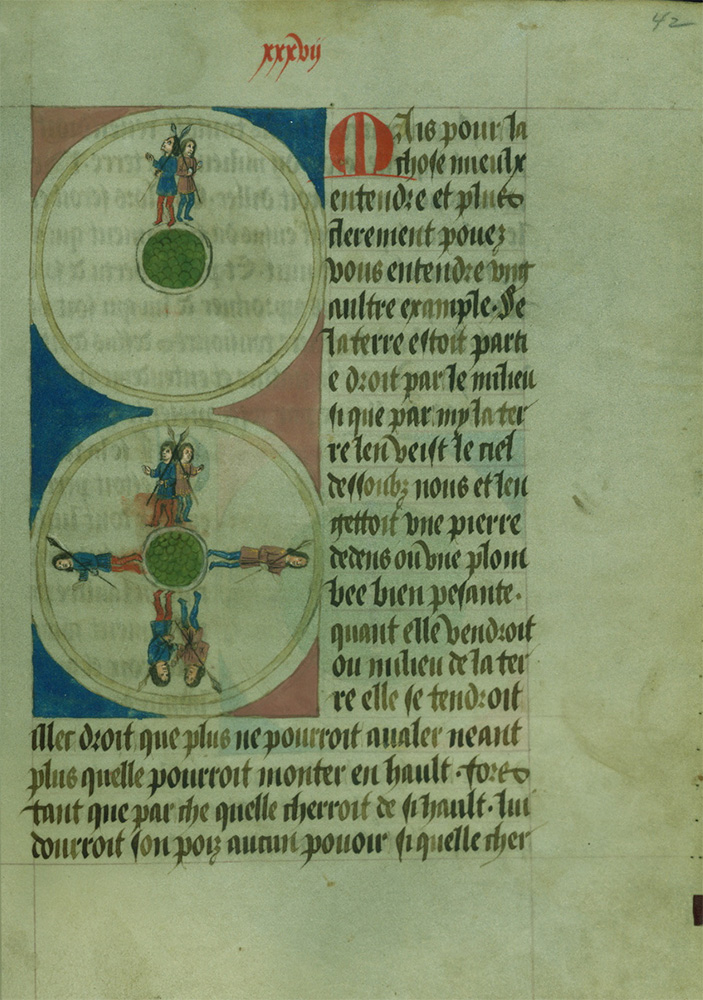 42
xxxvij
Mais pour la
chose mieulx
entendre et plus
clerement pouez
vous entendre vng
aultre example. Se
la terre estoit parti
e droit par le milieu
si que par my la ter
re len veist le ciel
dessoubz nous et len
gettoit vne pierre
dedens ou vne plom
bee bien pesante.
quant elle vendroit
ou milieu de la ter
re elle se tendroit
illec droit que plus ne pourroit aualer neant
plus quelle pourroit monter en hault. fors
tant que par che quelle cherroit de si hault. lui
dourroit son poiz aucun pouoir si quelle cher